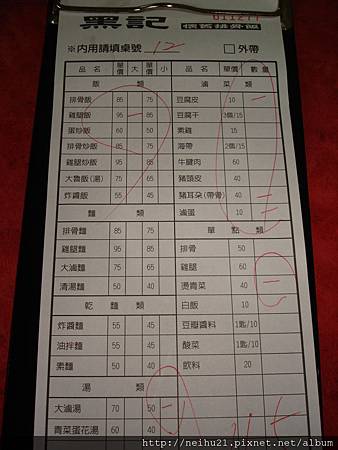 011277
黑記 懷舊排骨飯
※內用請填桌號 12 □外帶
品名 單價 大 單價 小 品名 單價 數量
飯類 滷菜類
排骨飯 85 75 豆腐皮 10 一
雞腿飯 95 一 85 豆腐干 3個/15
蛋炒飯 60 50 素雞 15
排骨炒飯 85 75 海帶 2個/15
雞腿炒飯 95 85 牛腱肉 60
大魯飯(湯) 75 65 豬頭皮 40
炸醬飯 55 45 豬耳朵(帶骨) 40
麵類 滷蛋 10 二
排骨麵 85 75 單點類
雞腿麵 95 85 排骨 50
大滷麵 75 65 雞腿 60
清湯麵 50 40 燙青菜 40 一
乾麵類 白飯 10
炸醬麵 55 45 豆瓣醬料 1匙/10
油拌麵 55 45 酸菜 1匙/10
素麵 50 40 飲料 20
湯類
大滷湯 70 50 一
青菜蛋花湯 60 40
http://neihu21.pixnet.net/album